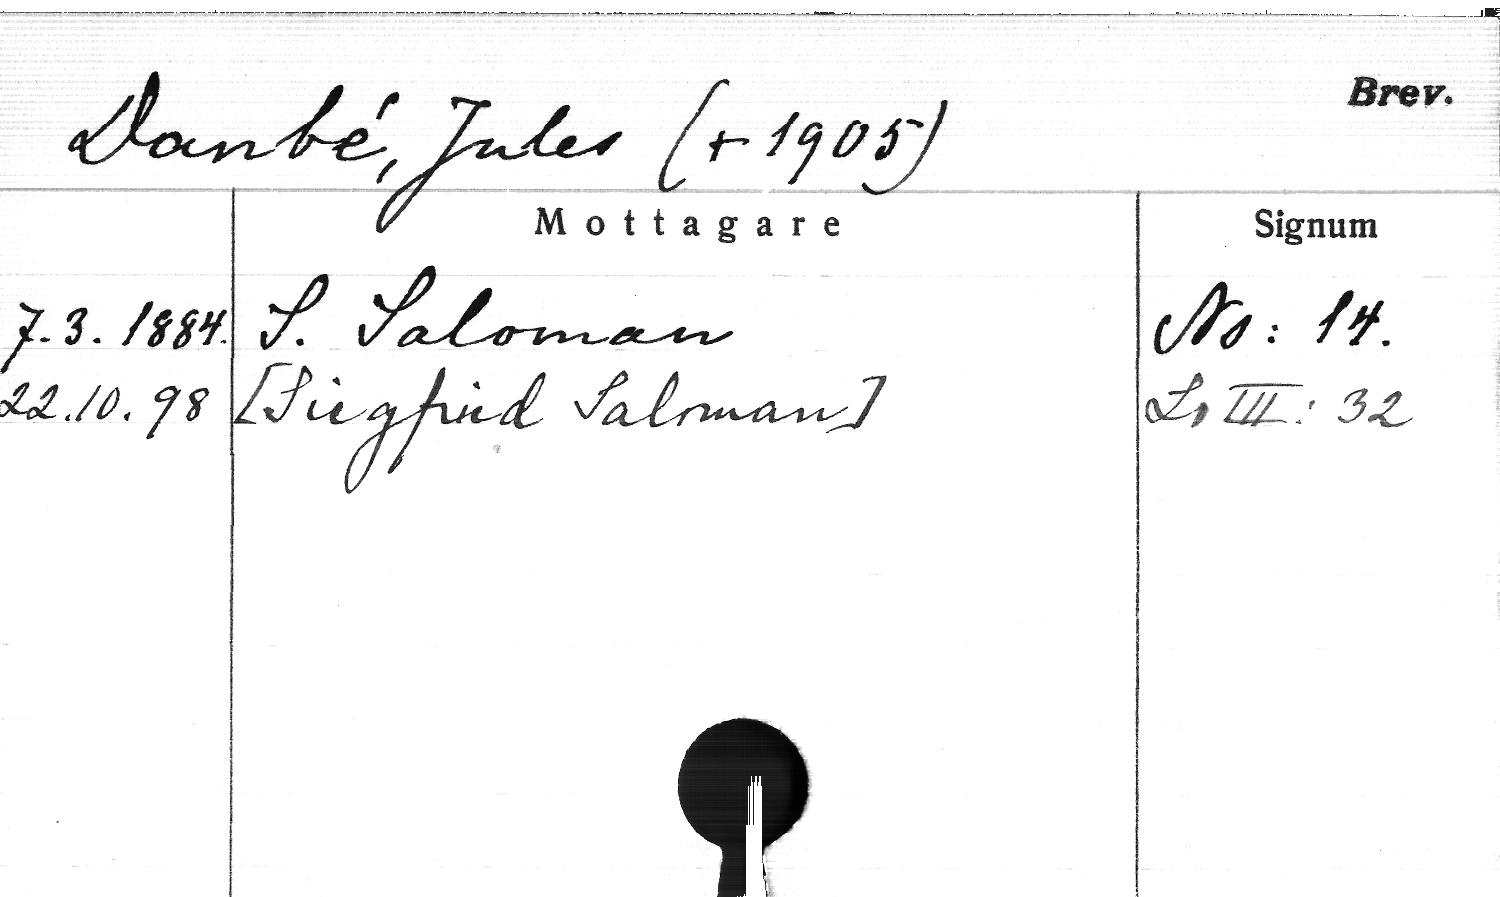 Brev.
Danbé, Jules (+ 1905)
Mottagare Signum
7.3. 1884. S. Saloman Ns: 14.
22.10.98 [Siegfried Saloman] Ls III: 32